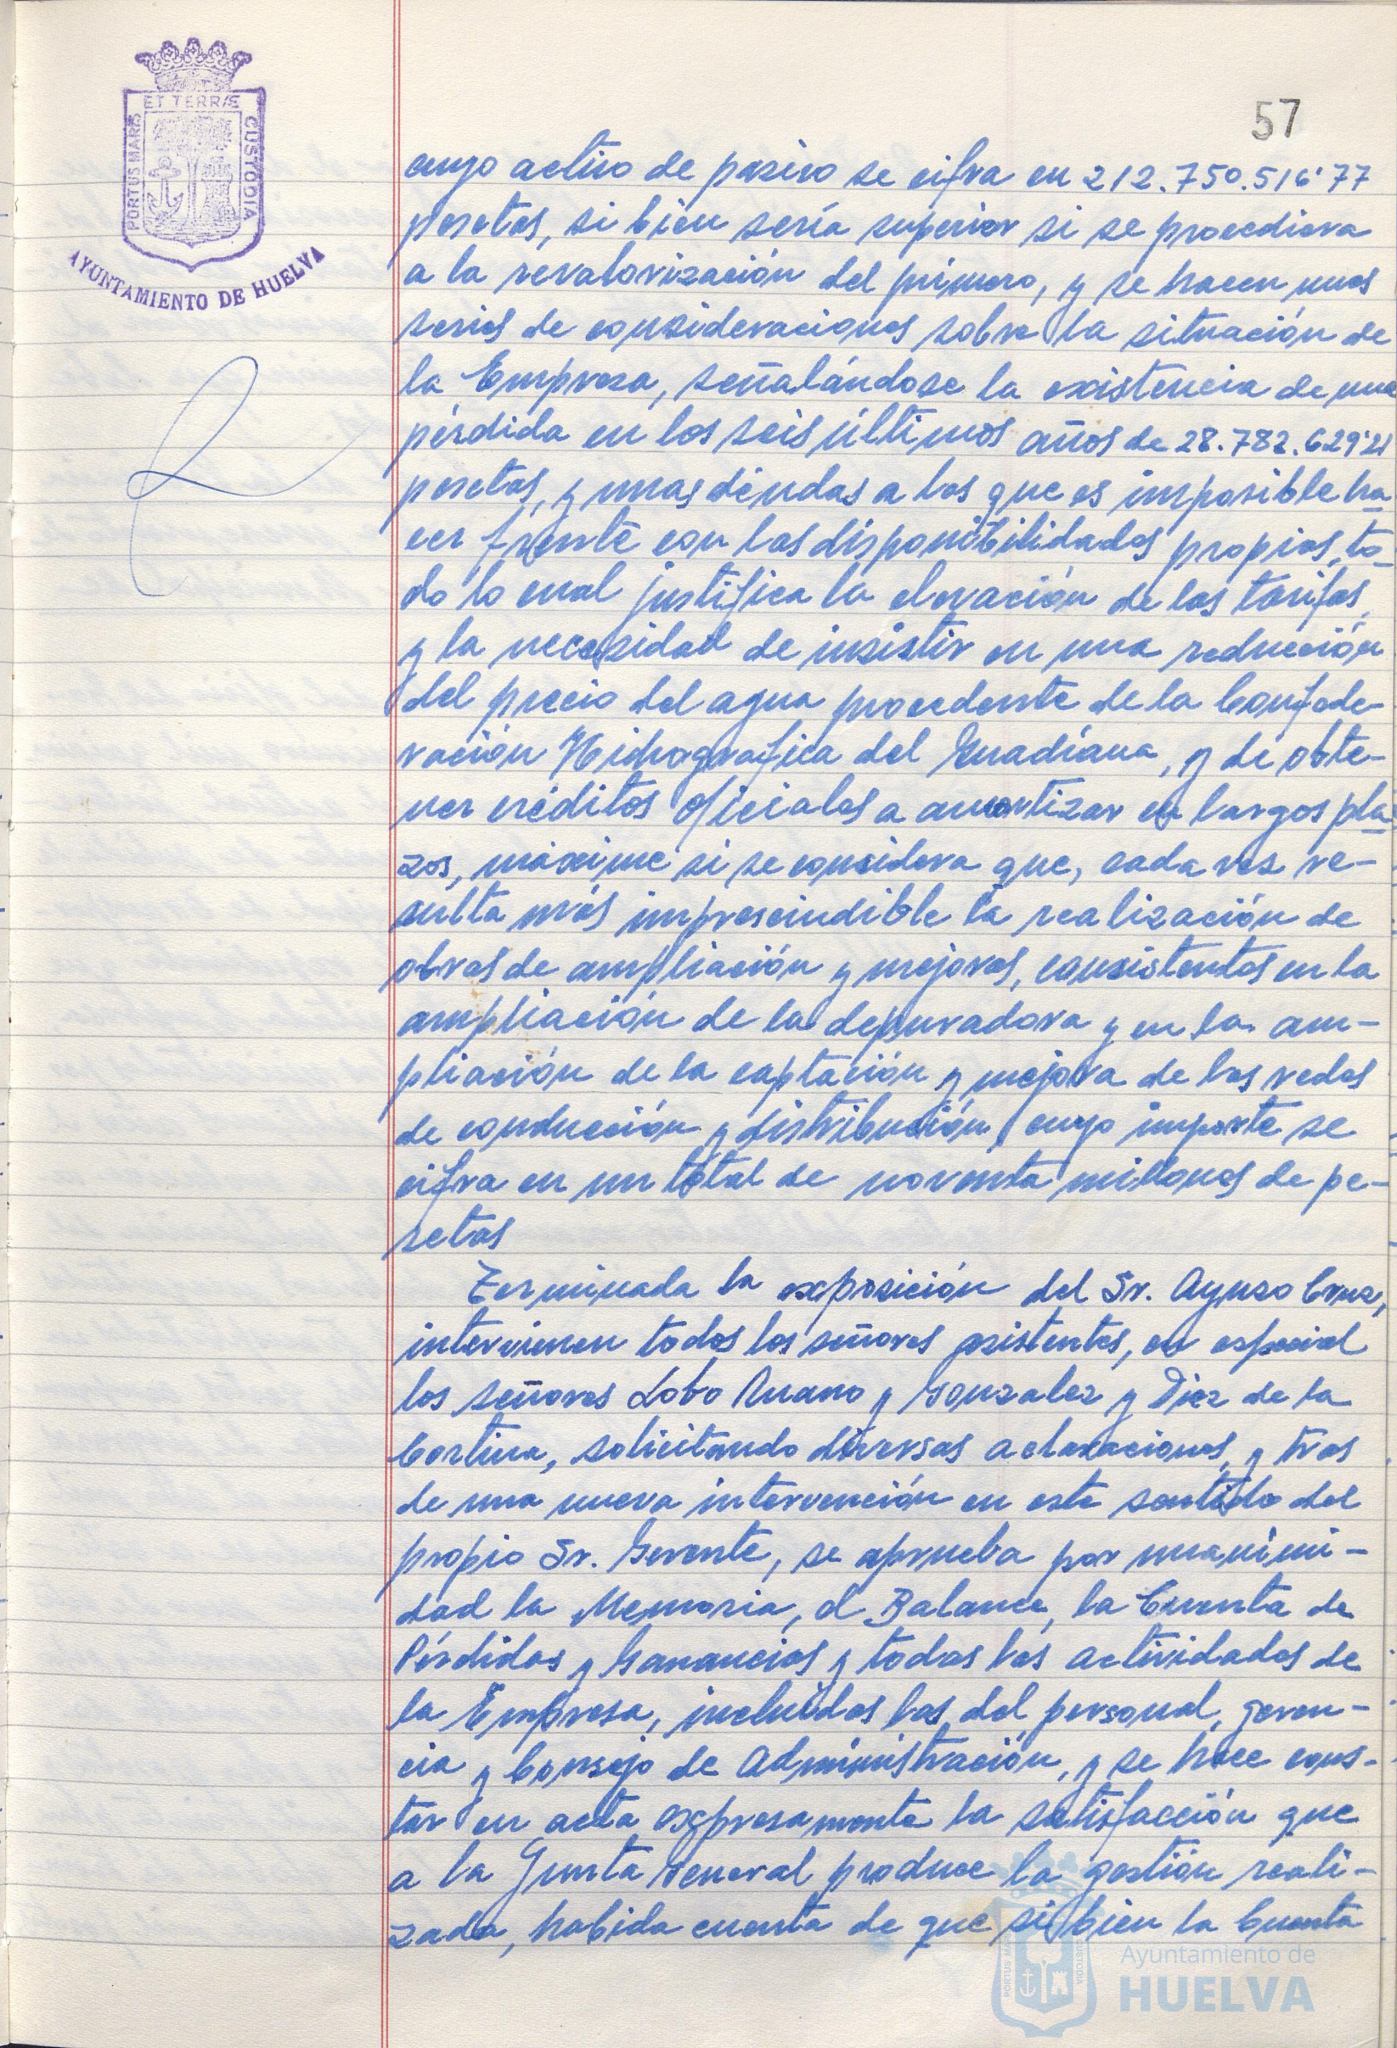 ET TERRÆ
PORTUS MARIS
CUSTODIA
AYUNTAMIENTO DE HUELVA
57
cuyo activo de pasivo se cifra en 212.750.516'77
pesetas, si bien sería superior si se procediera
a la revalorización del primero, y se hacen unas
series de consideraciones sobre la situación de
la Empresa, señalándose la existencia de una
pérdida en los seis últimos años de 28.782.629'21
pesetas, y unas deudas a las que es imposible ha-
cer frente con las disponibilidades propias, to-
do lo cual justifica la elevación de las tarifas
y la necesidad de insistir en una reducción
del precio del agua procedente de la Confede-
ración Hidrografica del Guadiana, y de obte-
ner créditos oficiales a amortizar en largos pla-
zos, máxime si se considera que, cada vez re-
sulta más imprescindible la realización de
obras de ampliación y mejoras, consistentes en la
ampliación de la depuradora y en la am-
pliación de la captación y mejora de las redes
de conducción y distribución, cuyo importe se
cifra en un total de noventa millones de pe-
setas
Terminada la exposición del Sr. Ayuso Cruz,
intervienen todos los señores asistentes, en especial
los señores Lobo Ruano y Gonzalez y Diez de la
Cortina, solicitando diversas aclaraciones, y tras
de una nueva intervención en este sentido del
propio Sr. Gerente, se aprueba por unanimi-
dad la Memoria, el Balance, la Cuenta de
Pérdidas y Ganancias y todas las actividades de
la Empresa, incluidas las del personal, geren-
cia y Consejo de Administración, y se hace cons-
tar en acta expresamente la satisfacción que
a la Junta General produce la gestión reali-
zada, habida cuenta de que si bien la Cuenta
Ayuntamiento de
HUELVA